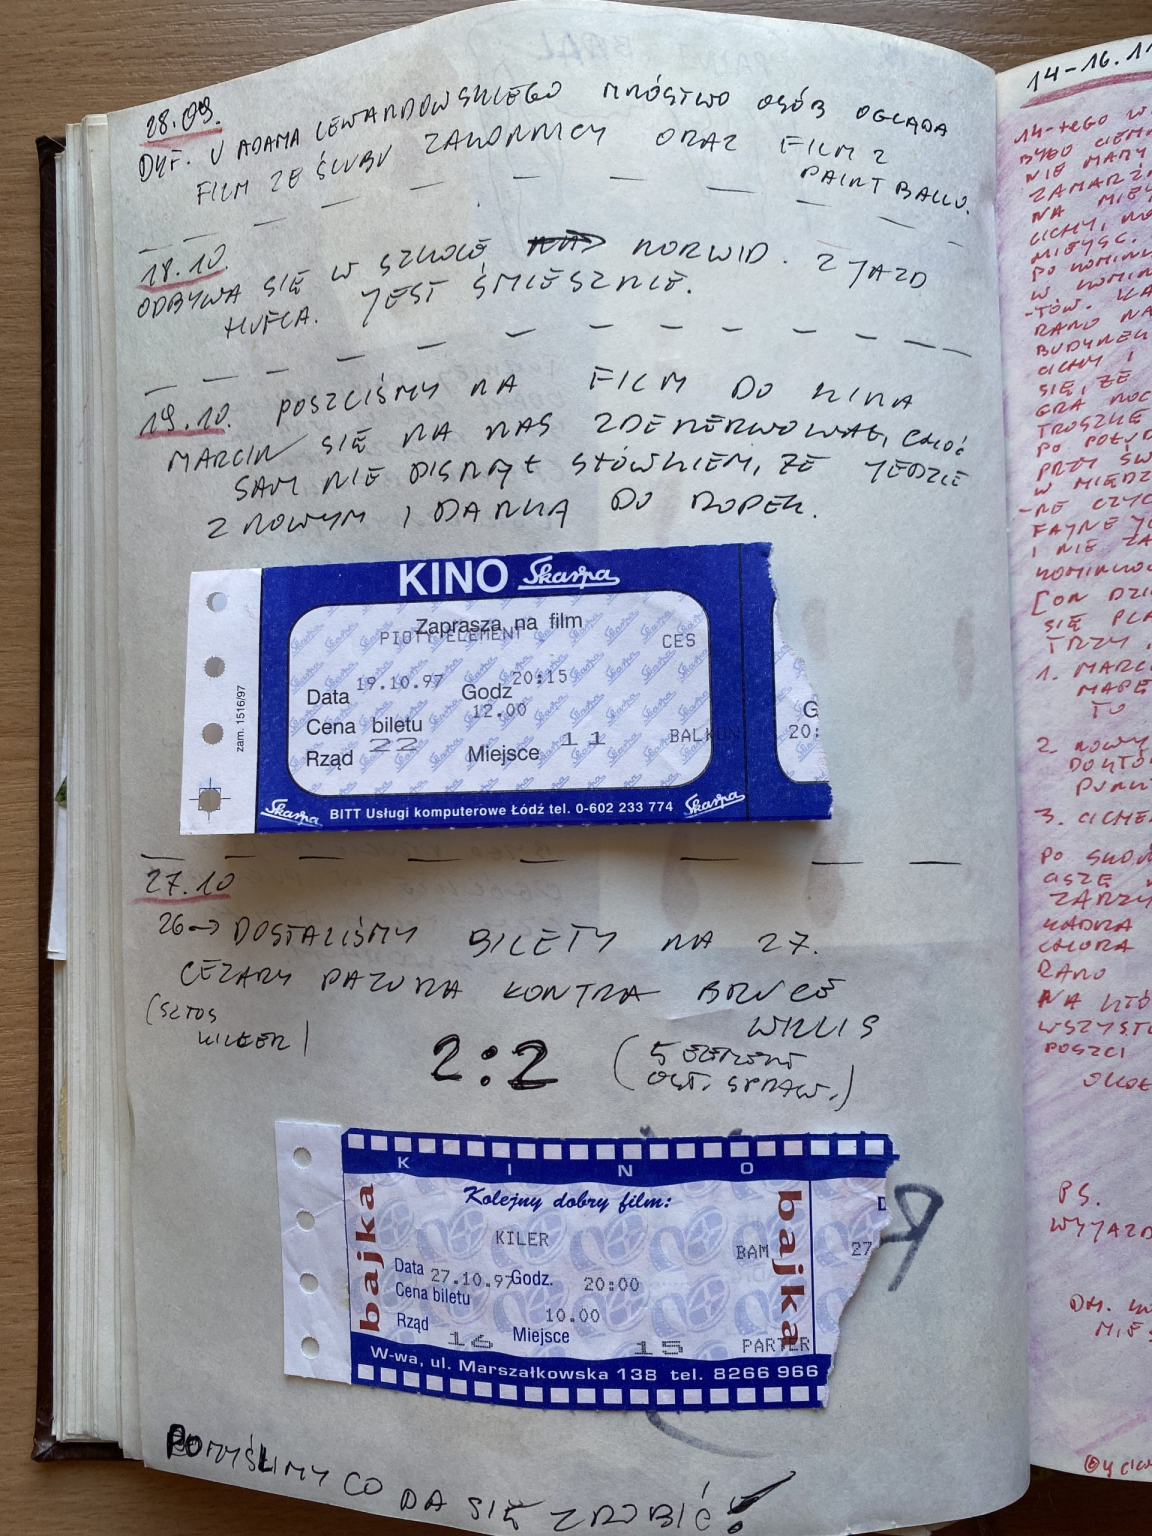 28.09.
DYŻ. U ADAMA LEWANDOWSKIEGO MNÓSTWO OSÓB OGLĄDA
FILM ZE ŚLUBU ZAWORNICY ORAZ FILM Z
PAINT BALLU.
18.10.
ODBYWA SIĘ W SZKOLE NORWID. ZJAZD
HUFCA. JEST ŚMIESZNIE.
19.10. POSZLIŚMY NA FILM DO KINA
MARCIN SIĘ NA NAS ZDENERWOWAŁ, CHOĆ
SAM NIE PISNĄŁ SŁÓWKIEM, ŻE JEDZIE
Z NOWYM I DANKĄ DO ROPEK.
KINO Skarpa
Zaprasza na film
PIĄTY ELEMENT
CES
Data 19.10.97 Godz 20:15
Cena biletu 12.00
Rząd 22 Miejsce 11 BALKON
G
20:
zam. 1516/97
Skarpa BITT Usługi komputerowe Łódź tel. 0-602 233 774 Skarpa
27.10
26→ DOSTALIŚMY BILETY NA 27.
CEZARY PAZURA KONTRA BRUCE
WILLIS
(SZTOS
KILLER)
2:2
(5 ELEMENT
OST. SPRAW.)
KINO
bajka
Kolejny dobry film:
KILER
BAM
Data 27.10.97 Godz. 20:00
Cena biletu 10.00
Rząd 16 Miejsce 15 PARTER
bajka
27
W-wa, ul. Marszałkowska 138 tel. 8266 966
POMYŚLIMY CO DA SIĘ ZROBIĆ!
14-16.11
14-TEGO W
NIE MAMY
NA MIEJ
CICHY,
MIEJSC.
PO KOMINK
W KOMIN
-TÓW.
RANO NA
BUDYNEK
CICHY I
SIĘ, ŻE
GRA NOC
TROSZKĘ
PO POŁUD
PRZY ŚW
W MIĘDZ
-NE CZYC
FAJNE
I NIE ZA
KOMINKO
[ON DZI
SIĘ PLA
TRZY
1. MARC
MAPĘ
TO
2. NOWY
PUNK
3. CICHE
PO
KADRA
CHORA
RANO
NA KTÓ
WSZYST
POSZLI
PS.
WYJAZD